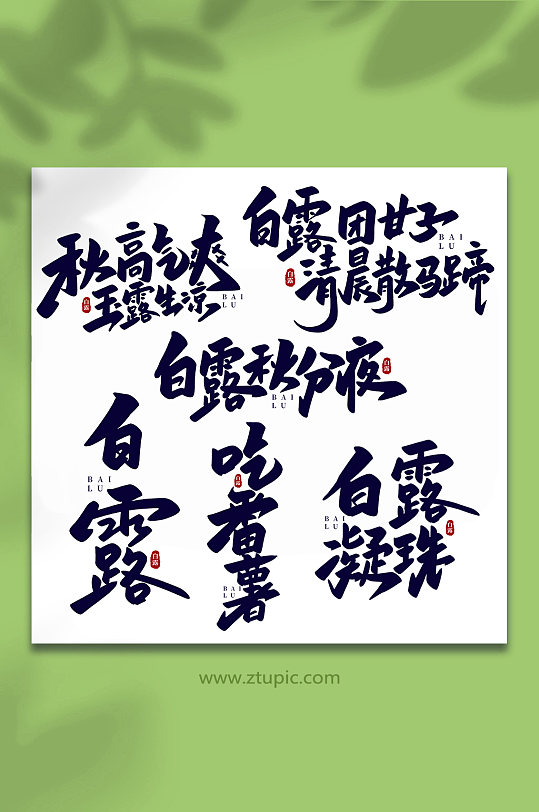 秋高气爽
玉露生凉
白露
BAI
LU
白露团甘子
清晨散马蹄
白露
BAI
LU
白露秋分夜
白露
BAI
LU
白露
BAI
LU
白露
吃番薯
白露
BAI
LU
白露
凝珠
BAI
LU
白露
www.ztupic.com